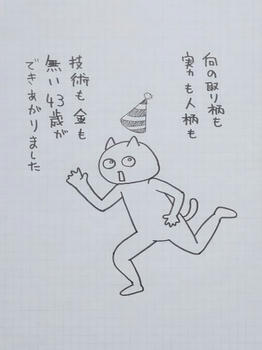 何の取り柄も
実力も人柄も
技術も金も
無い43歳が
できあがりました